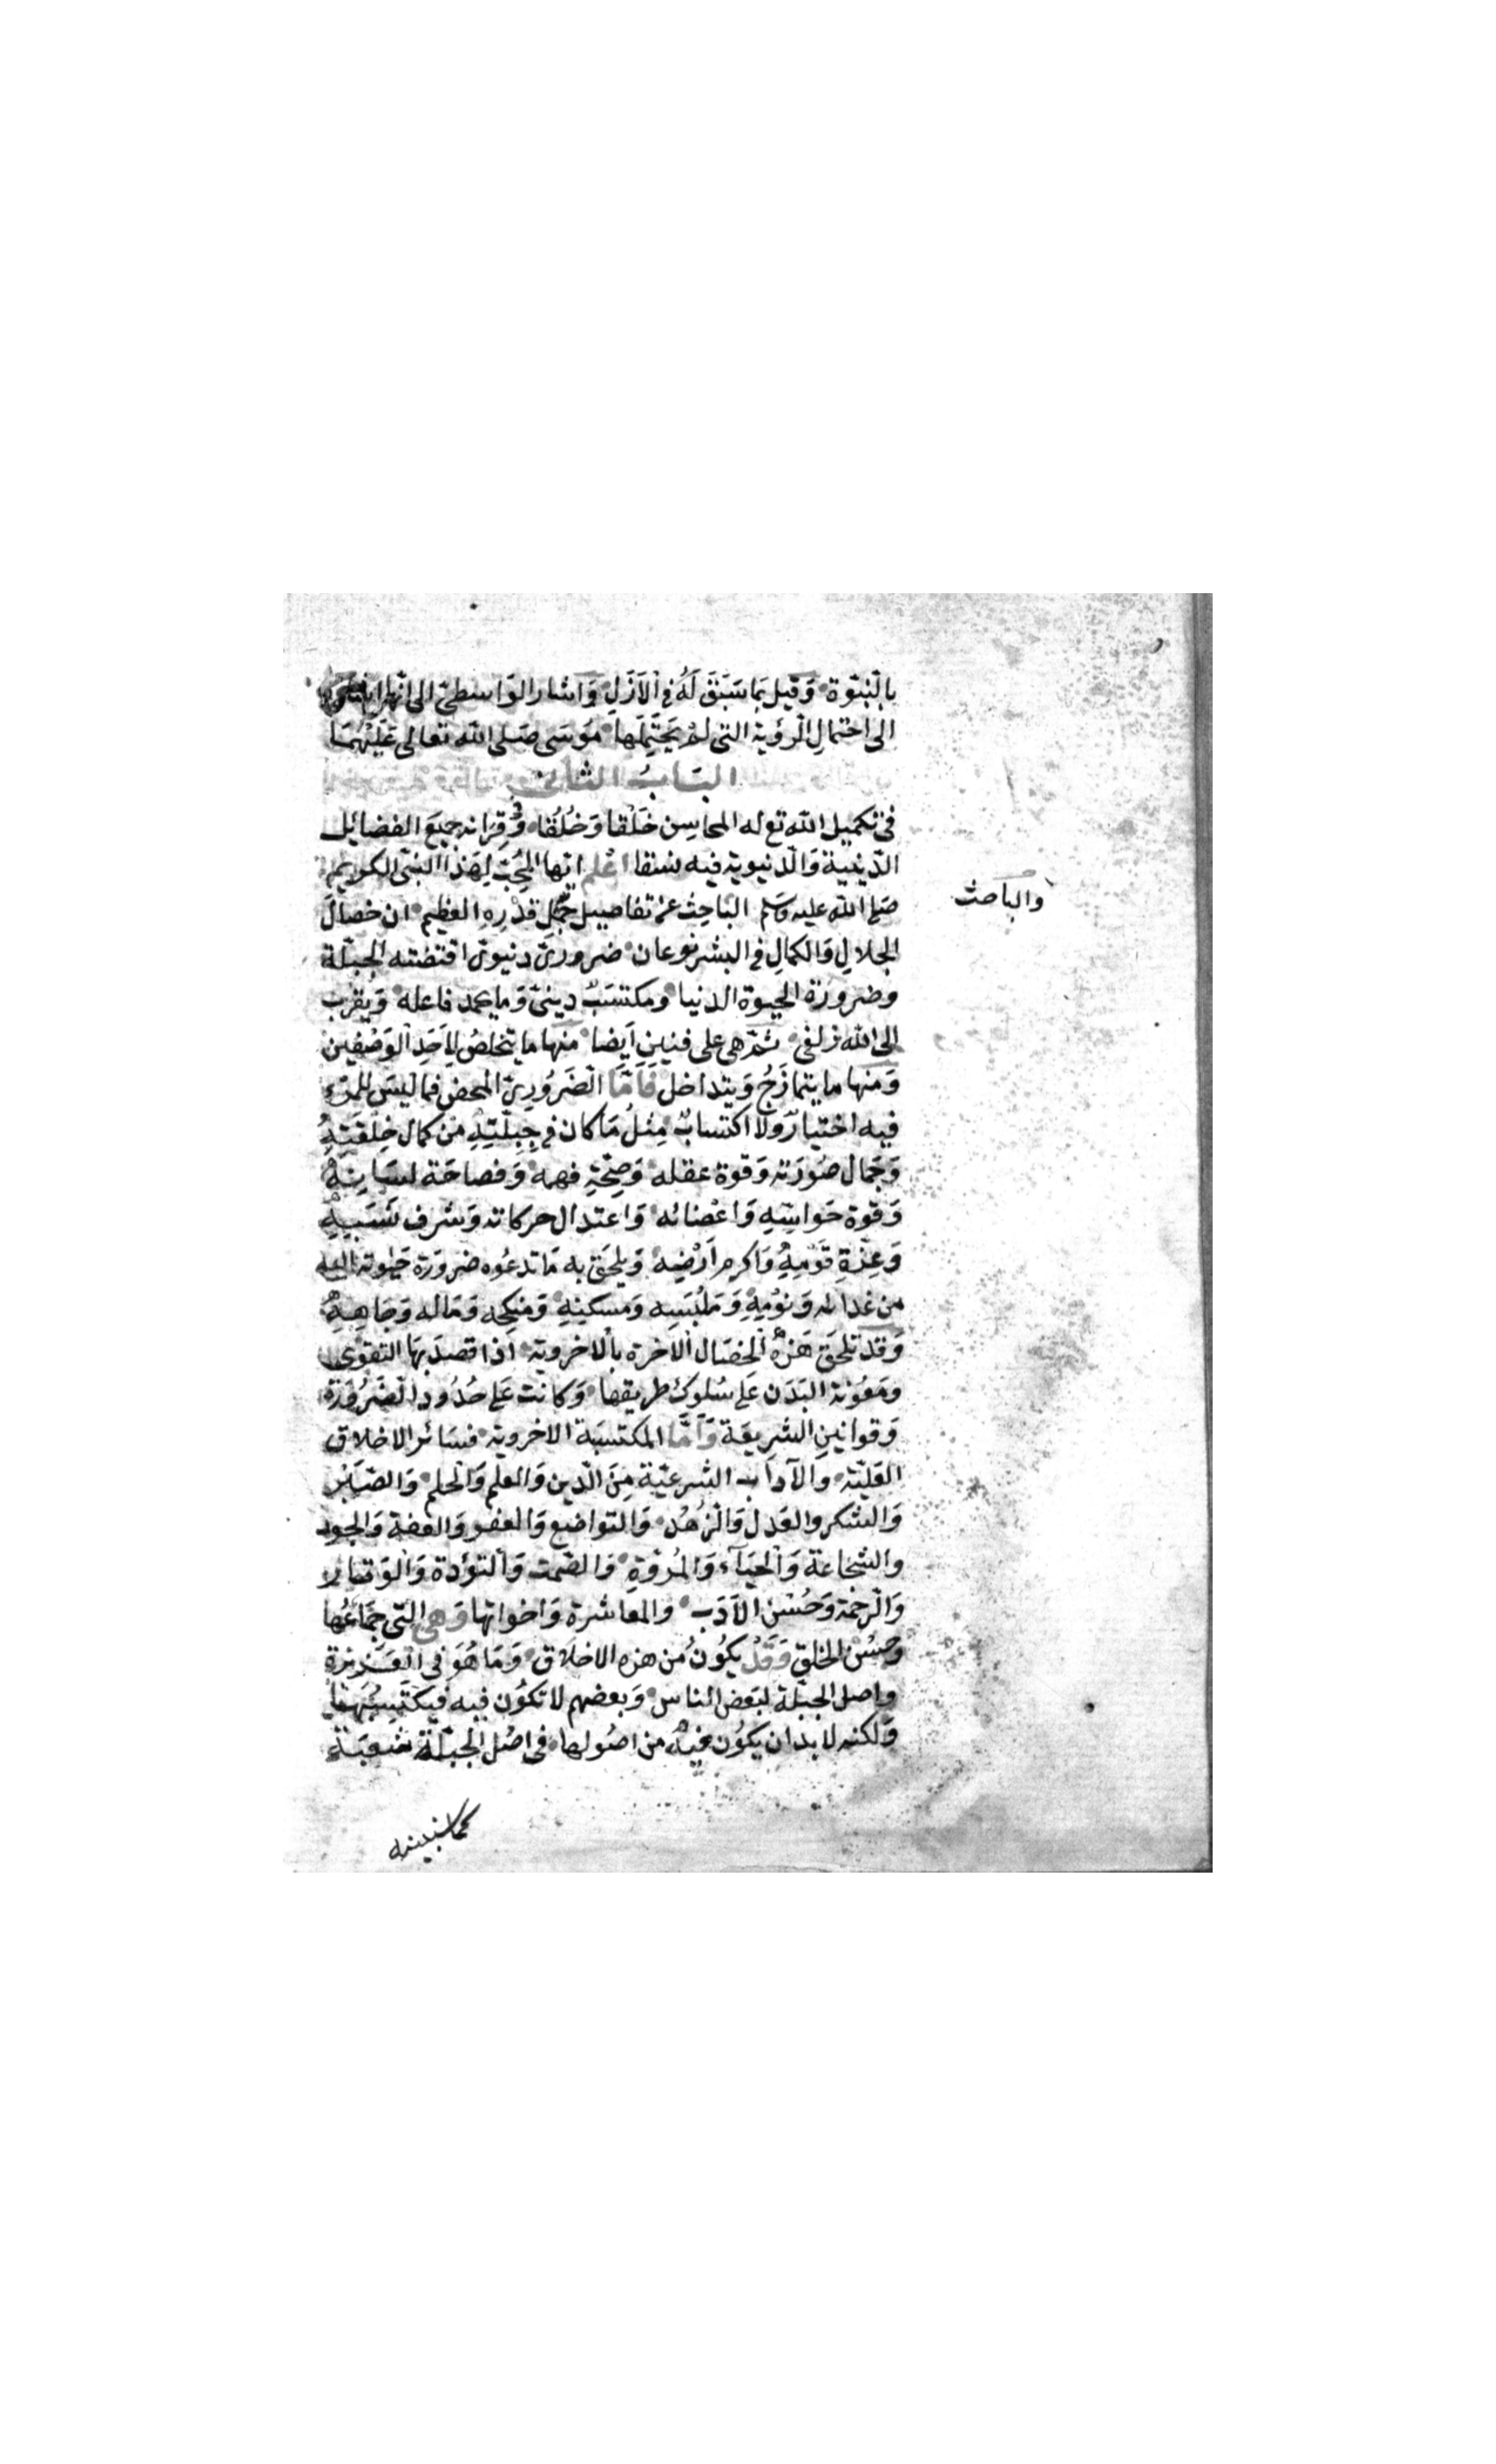 بِالنُبُوّة وَقيل بمَا سَبَقَ لَهُ في الاَزَلِ وَاشار الوَاسطىّ الى انّها
الى احْتمالِ الرُؤيةِ التى لمْ يَحْتَمِلْهَا مُوسَى صَلى الله تعالى عَلَيْهمَا
البَابُ الثّانى
في تكميل الله تع له المحاسِن خَلْقا وَخُلُقا وَقِرَانه جميعَ الفضائِل
الدّينية وَالدّنيوية فيه نسَقا اعْلم ايّها المُحِبّ لِهَذا النبّى الكريم
صَلى الله عليه وسَلم البَاحِث عن تفاصيل جُمَل قدْرِهِ العظيم ان خصالَ
والباحث
الجلالِ وَالكمالِ في البشر نوعان ضرورىّ دنيوىّ اقتضته الجبلّة
وضرورَة الحيوة الدنيا ومكتسَبٌ دينىّ وَما يحمد فاعله وَيقرّب
الى الله زلفى ثمّ هي على فنين اَيضا منها ما يتخلصُ لِاَحَد الوَصْفين
وَمنها ما يتمازَجُ وَيتداخل فَاَمَّا الضَرُورىّ المحض فما ليسَ للمَرْءِ
فيه اختيارٌ وَلا اكتسابٌ مِثلُ مَا كان في جِبِلّتِهِ من كمال خِلقَتِهِ
وَجَمال صُورَته وَقوة عقله وَصِحّةِ فهمه وَفصاحَة لسَانِهِ
وَقوّة حَواسِّهِ وَاعْضائه وَاعتدال حركاته وَشرف نَسَبِهِ
وَعِزّةِ قَوْمِهِ وَكرم اَرْضِهِ وَيلحَق به مَا تدعُوه ضرورَة حَيٰوته اليه
من غذائه وَنوْمِهِ وَمَلْبَسِه وَمسكنِهِ وَمنكحِه وَمَاله وَجَاهِهِ
وَقد تلحَق هَذِهِ الخصَال الاخرة بالاخرويّة اذا قصدَ بهَا التقوى
ومَعُونة البَدَن عَلى سُلوك طريقها وَكانت عَلى حُدُود الضَرُورَة
وَقوانينِ الشريعَة وَاَمَّا المكتسَبَة الاخروية فسَائر الاخلاق
العَليّة وَالاَداب الشرعيّة مِنَ الدّين وَالعلم وَالحلم وَالصّبْر
وَالشكر والعَدل وَالزهد وَالتواضع وَالعفو وَالعفة وَالجود
والشجاعة وَالحيَآء وَالمرُوّةِ وَالصّمت وَالتؤدة وَالوَقار
وَالرحمة وَحُسْن الاَدَب والمعَاشرة وَاخواتها وَهي التّى جمَاعُها
وحسْن الخلق وَقَدْ يَكوُنُ من هذه الاخلاق وَمَا هُوَ في الغَريزة
واصل الجبلّة لبَعض الناس وَبعضهم لا تكوُن فيه فَيكتَسِبُهَا
وَلكنه لا بد ان يكوُن فيهِ من اصُولها في اصْل الجبلّة شعبَة
كما سنبينه